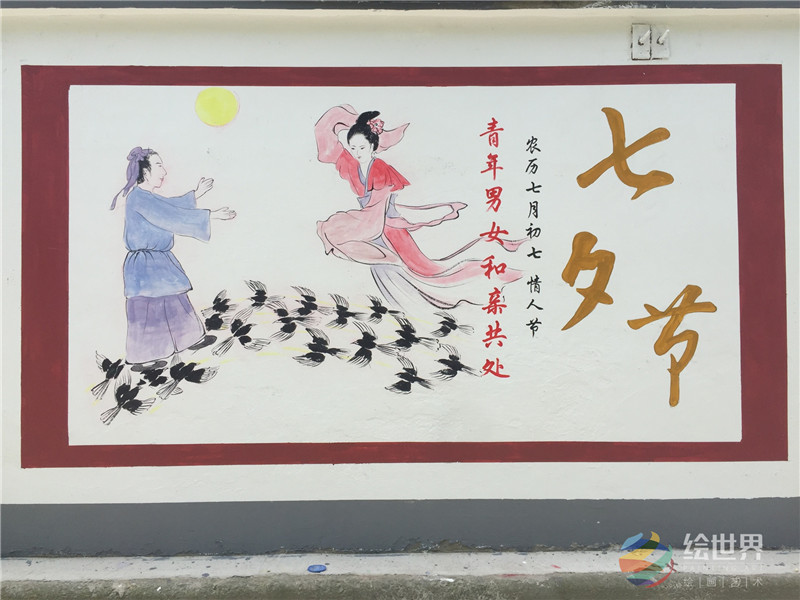 七夕节
农历七月初七 情人节
青年男女和亲共处
绘世界
绘|画|艺|术